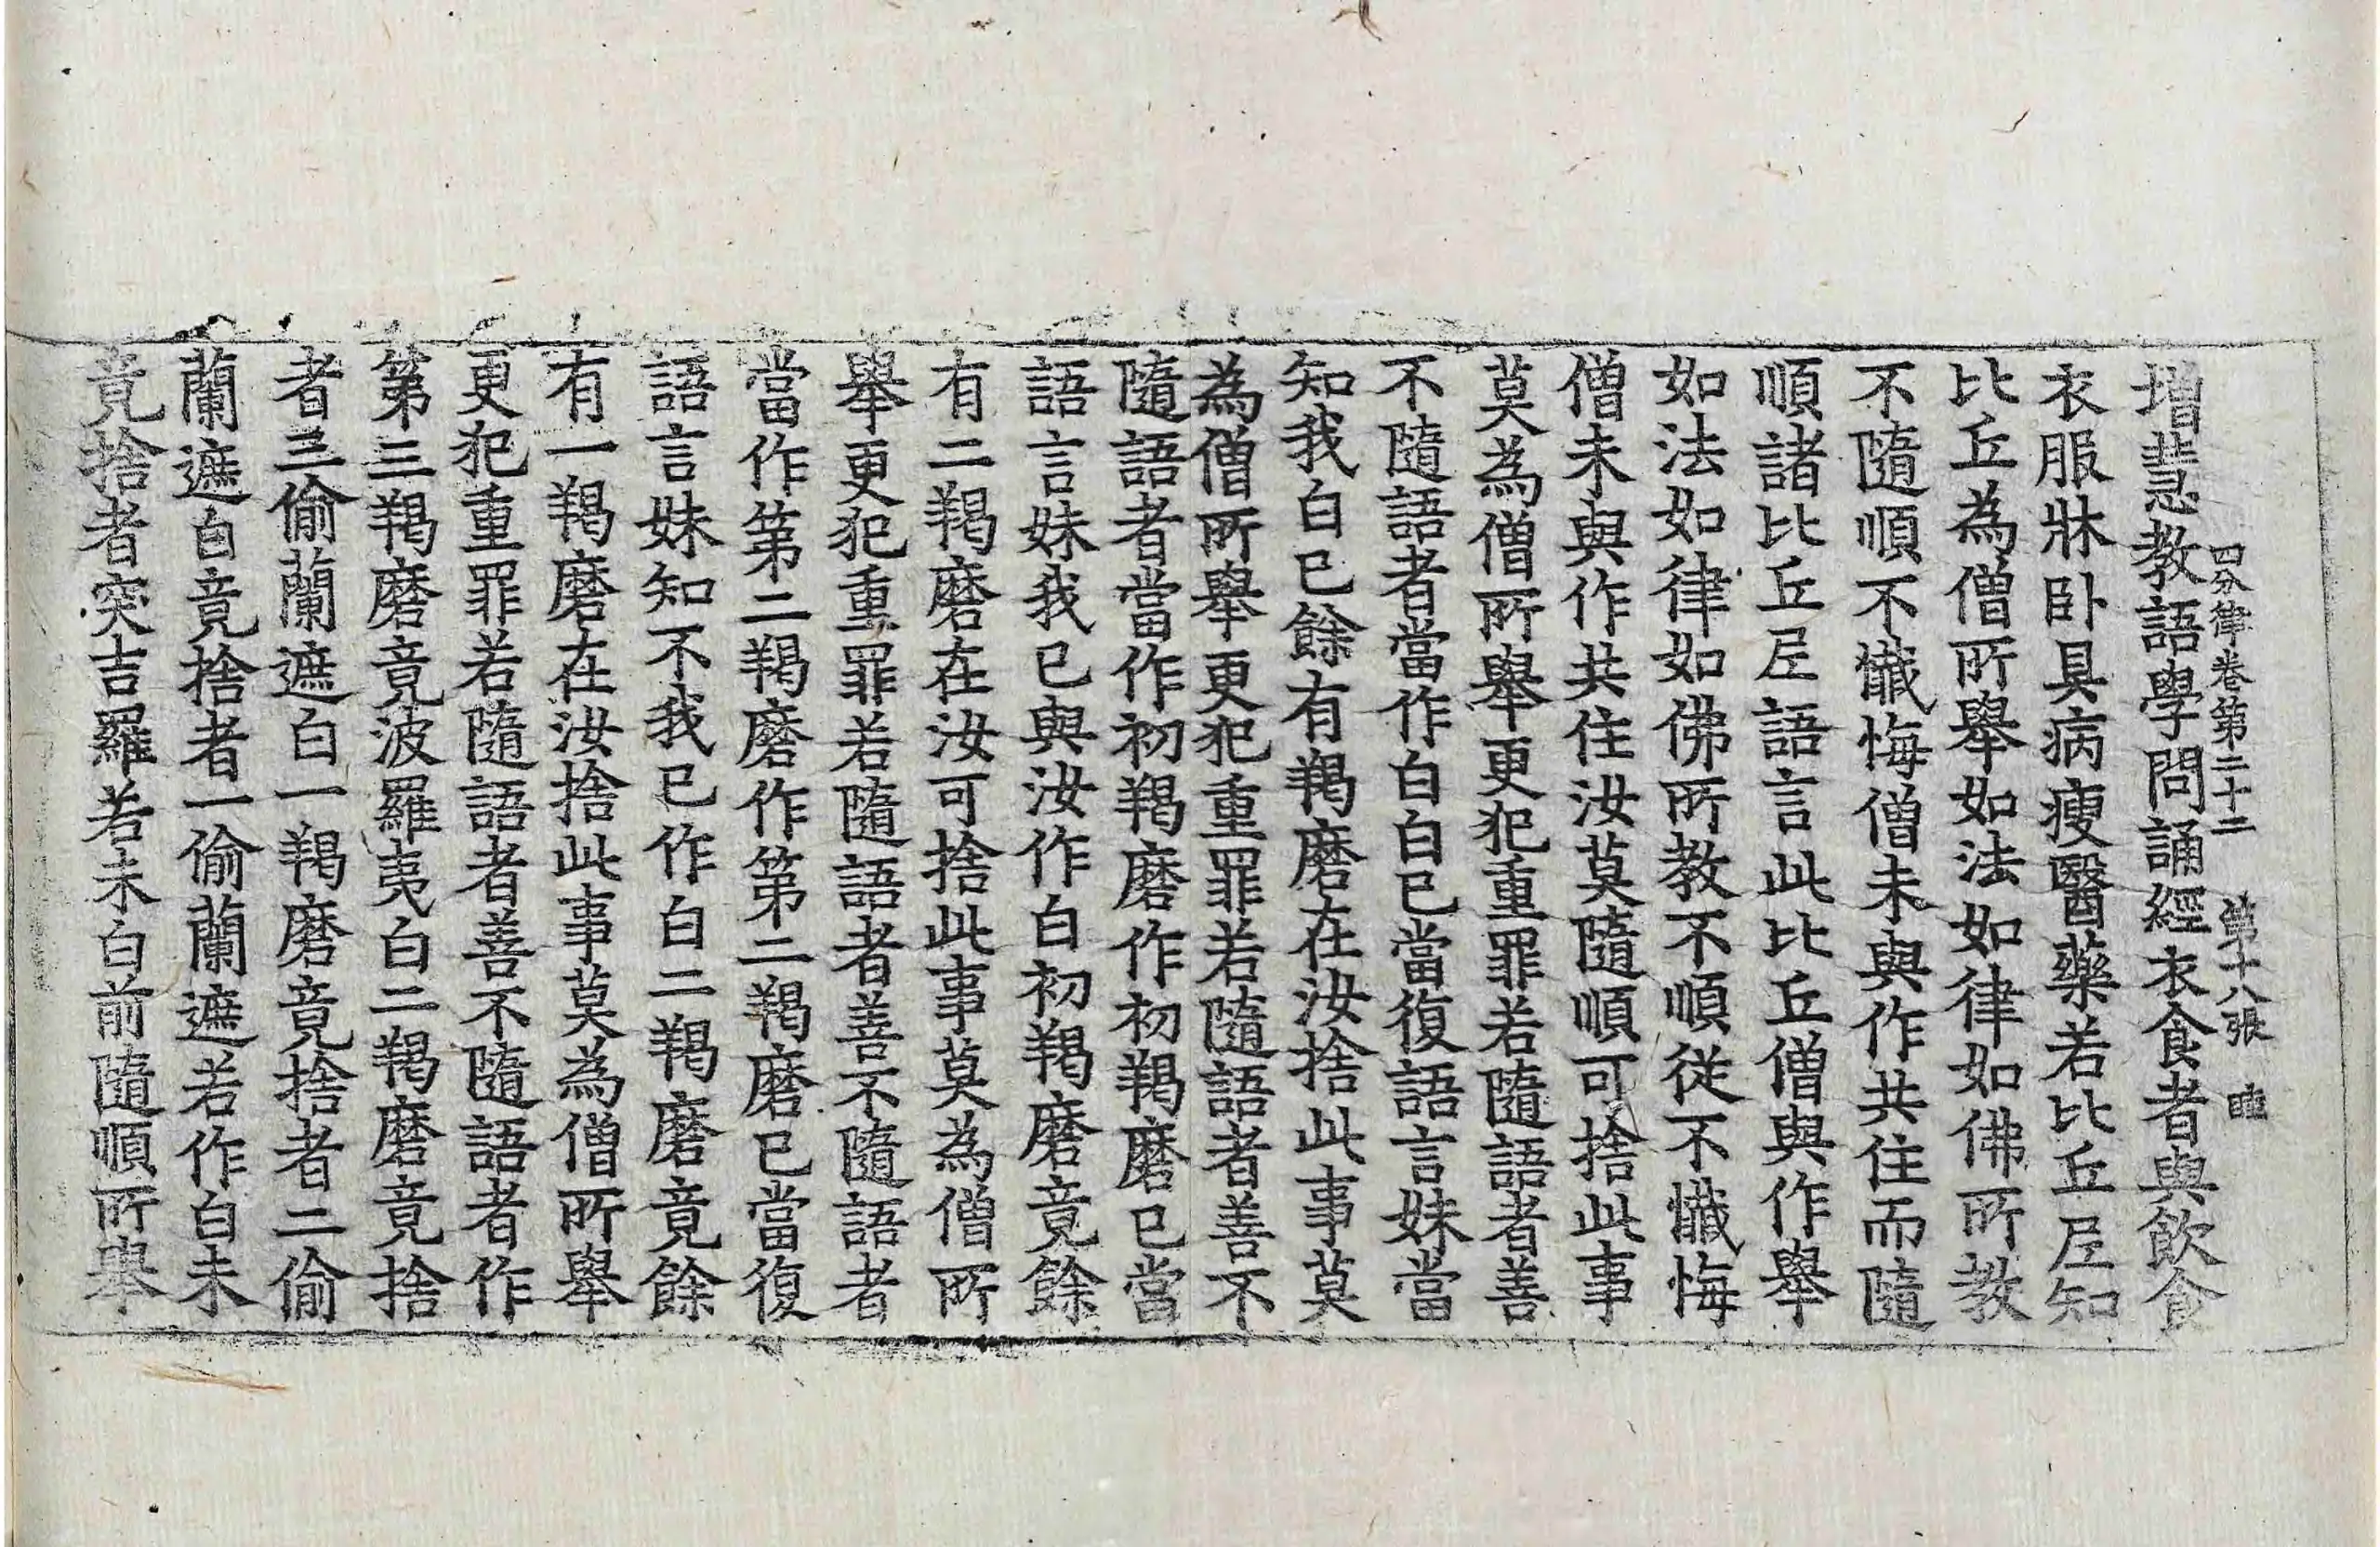 四分律卷第二十二 第十八張
增慧教語學問誦經衣食者與飲食
衣服牀卧具病瘦醫藥若比丘𡰱知
比丘為僧所舉如法如律如佛所教
不隨順不懺悔僧未與作共住而隨
順諸比丘𡰱語言此比丘僧與作舉
如法如律如佛所教不順從不懺悔
僧未與作共住汝莫隨順可捨此事
莫為僧所舉更犯重罪若隨語者善
不隨語者當作白白已當復語言妹當
知我白已餘有羯磨在汝捨此事莫
為僧所舉更犯重罪若隨語者善不
隨語者當作初羯磨作初羯磨已當
語言妹我已與汝作白初羯磨竟餘
有二羯磨在汝可捨此事莫為僧所
舉更犯重罪若隨語者善不隨語者
當作第二羯磨作第二羯磨已當復
語言妹知不我已作白二羯磨竟餘
有一羯磨在汝捨此事莫為僧所舉
更犯重罪若隨語者善不隨語者作
第三羯磨竟波羅夷白二羯磨竟捨
者三偷蘭遮白一羯磨竟捨者二偷
蘭遮白竟捨者一偷蘭遮若作白未
竟捨者突吉羅若未白前隨順所舉